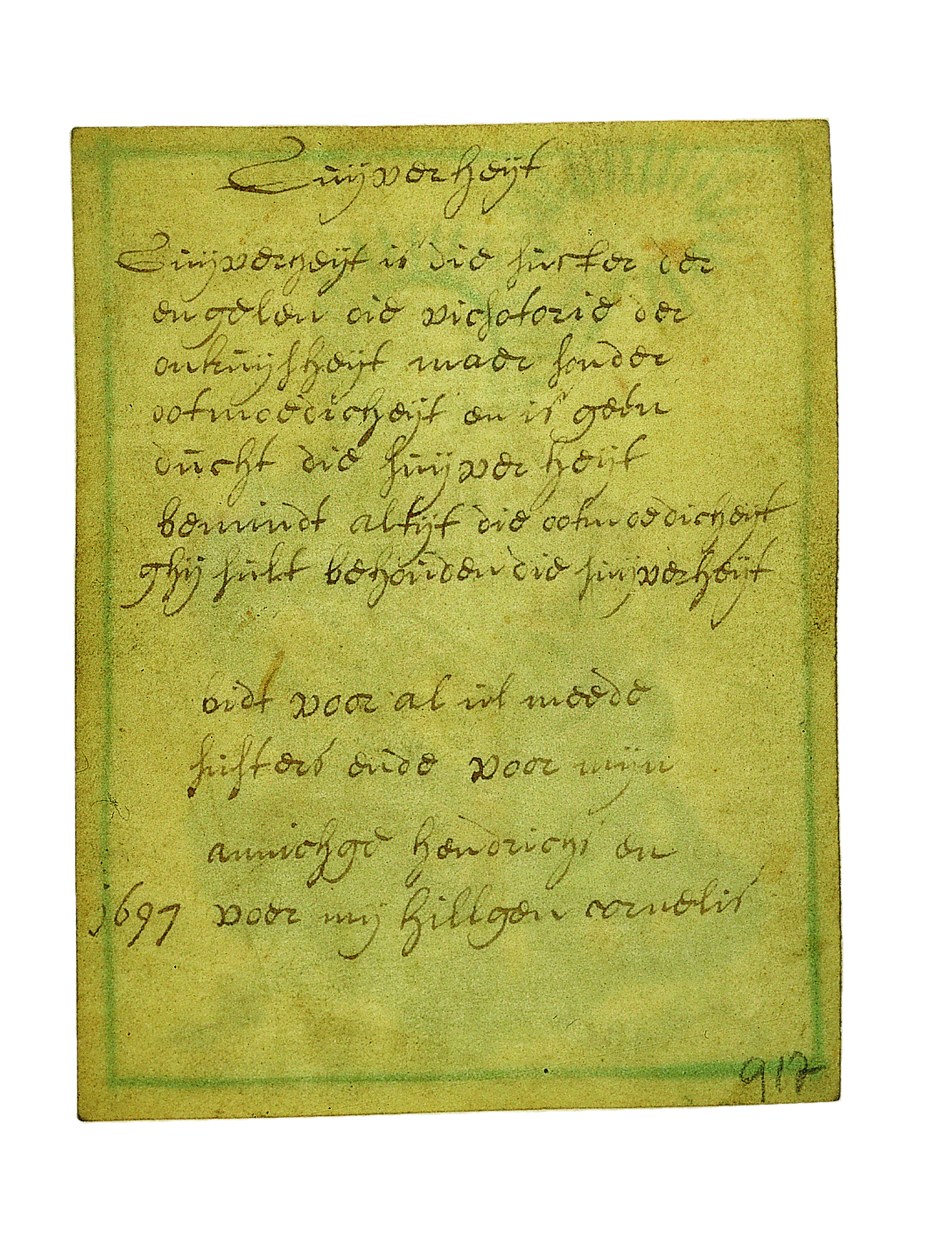 Suijverheijt
Suijverheijt is die suster der
engelen die vichotorie der
onkuijsheijt maer sonder
ootmoedicheijt en is geen
ducht die suijver heijt
bemindt altijt die ootmoedicheijt
ghij sult behouden die suijverheijt
bidt voor al ul meede
susters ende voor mijn
annichge hendricys en
1697 voer mij hillgen cornelis
917